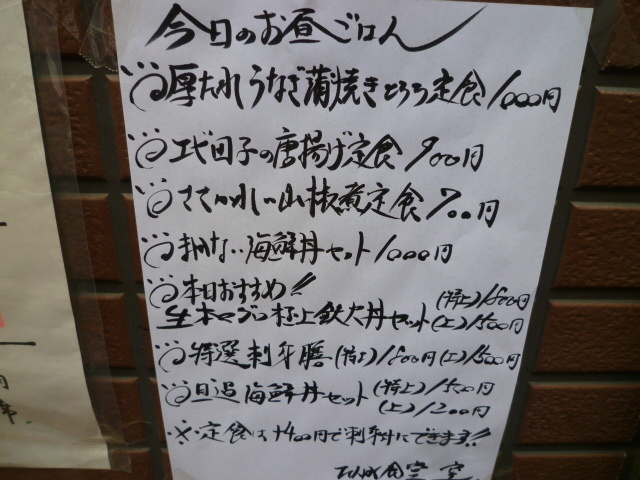 今日のお昼ごはん
厚たれうなぎ蒲焼きとろろ定食 1000円
エビ団子の唐揚げ定食 900円
ささがれいの山椒煮定食 700円
まかない海鮮丼セット 1000円
本日おすすめ!!
生本マグロ極上鉄火丼セット (特上)1800円 (上)1500円
特選刺身膳 (特上)1800円 (上)1500円
旦過海鮮丼セット (特上)1500円 (上)1200円
※定食は+400円で刺身丼にできます!!
食堂